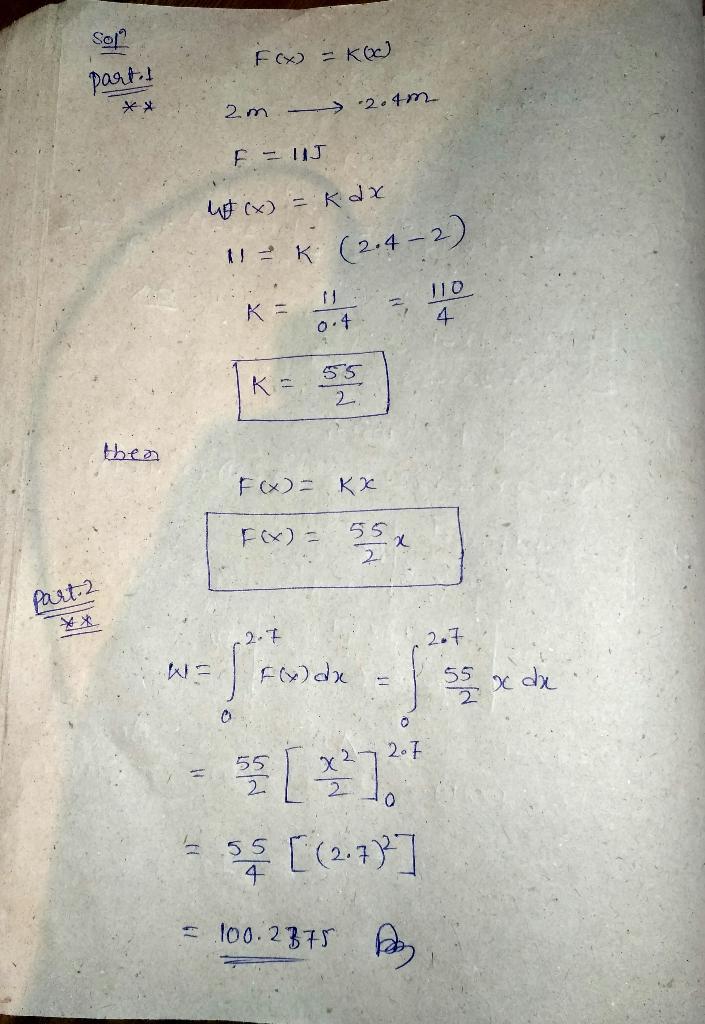 Solⁿ
part.1
F(x) = K(x)
2m → 2.4m
F = 11J
(x) = K dx
11 = K (2.4 - 2)
K = 11/0.4 = 110/4
K = 55/2
then
F(x) = Kx
F(x) = 55/2 x
part.2
W = ∫₀^2.7 F(x) dx = ∫₀^2.7 55/2 x dx
= 55/2 [x²/2]₀^2.7
= 55/4 [(2.7)²]
= 100.2375